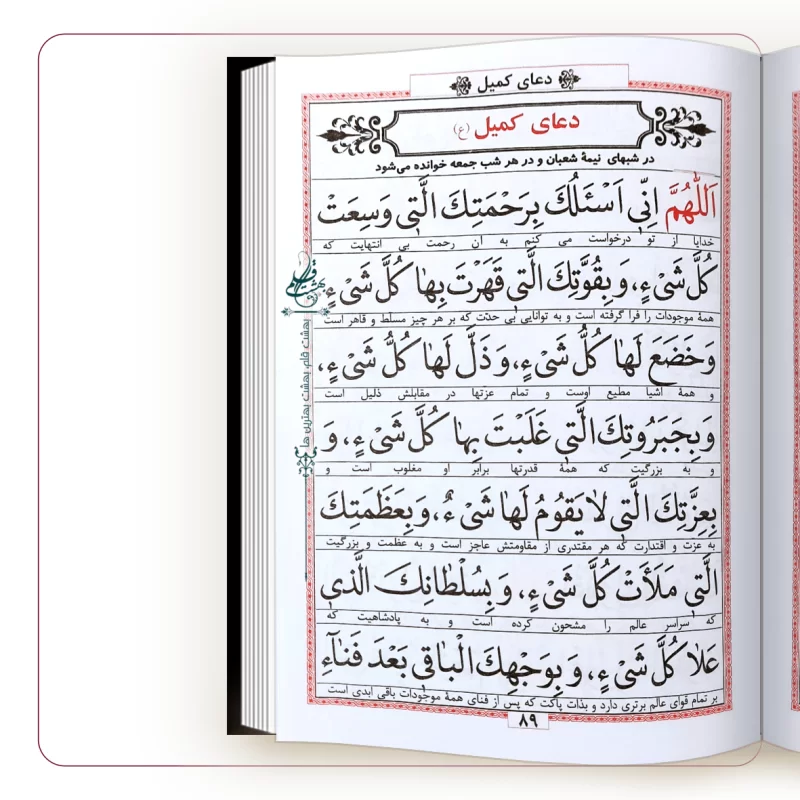 دعای کمیل
دعای کمیل (ع)
در شبهای نیمۀ شعبان و در هر شب جمعه خوانده می‌شود
اَللّٰهُمَّ اِنّی اَسْئَلُكَ بِرَحْمَتِكَ الَّتی وَسِعَتْ
خدایا از تو درخواست می کنم به آن رحمت بی انتهایت که
كُلَّ شَیْءٍ، وَ بِقُوَّتِكَ الَّتی قَهَرْتَ بِهٰا كُلَّ شَیْءٍ
همۀ موجودات را فرا گرفته است و به توانایی بی حدّت که بر هر چیز مسلط و قاهر است
وَ خَضَعَ لَهٰا كُلُّ شَیْءٍ، وَ ذَلَّ لَهٰا كُلُّ شَیْءٍ،
و همۀ اشیا مطیع اوست و تمام عزتها در مقابلش ذلیل است
وَ بِجَبَرُوتِكَ الَّتی غَلَبْتَ بِهٰا كُلَّ شَیْءٍ، وَ
و به بزرگیت که همۀ قدرتها برابر او مغلوب است و
بِعِزَّتِكَ الَّتی لاٰ یَقُومُ لَهٰا شَیْءٌ، وَ بِعَظَمَتِكَ
به عزت و اقتدارت که هر مقتدری از مقاومتش عاجز است و به عظمت و بزرگیت
الَّتی مَلَأَتْ كُلَّ شَیْءٍ، وَ بِسُلْطٰانِكَ الَّذی
که سراسر عالم را مشحون کرده است و به پادشاهیت که
عَلاٰ كُلَّ شَیْءٍ، وَ بِوَجْهِكَ الْبٰاقی بَعْدَ فَنٰاۤءِ
بر تمام قوای عالم برتری دارد و بذات پاکت که پس از فنای همۀ موجودات باقی ابدی است
۸۹
بهشت قلم
بهشت قلم، بهشت بهترین ها